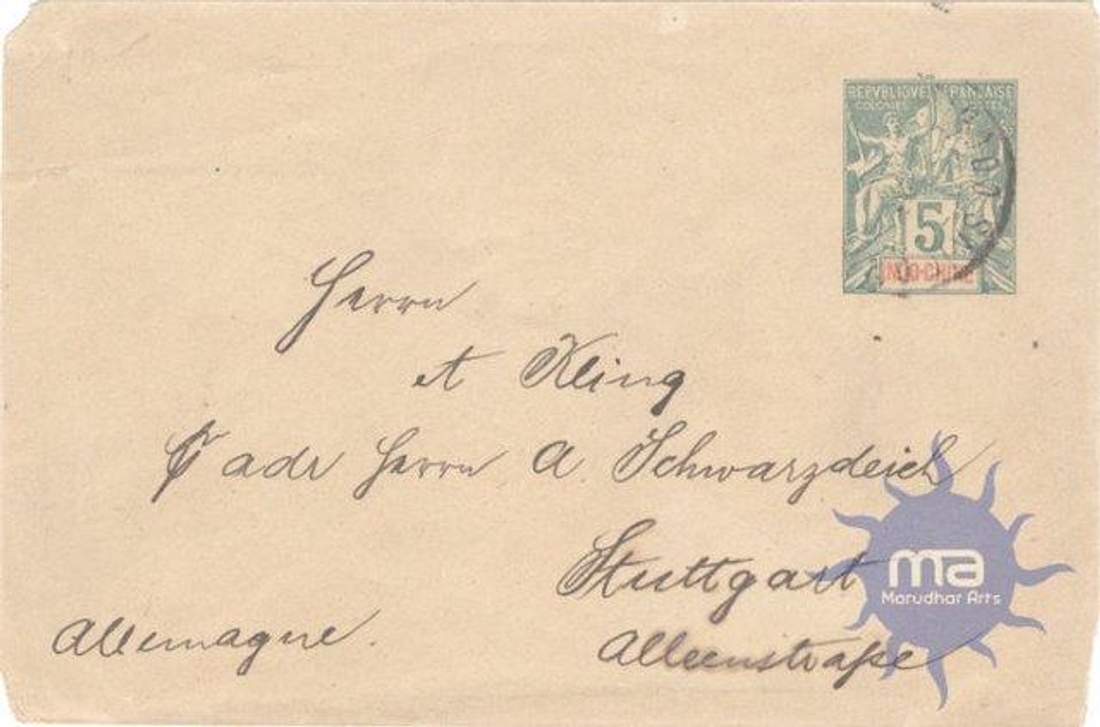 REPVBLIQVE FRANÇAISE
COLONIES POSTES
5
INDO-CHINE
Herrn
A Kling
adr Herrn A. Schwarzdeich
Stuttgart
Alleenstraße
Allemagne.
ma
Marudhar Arts